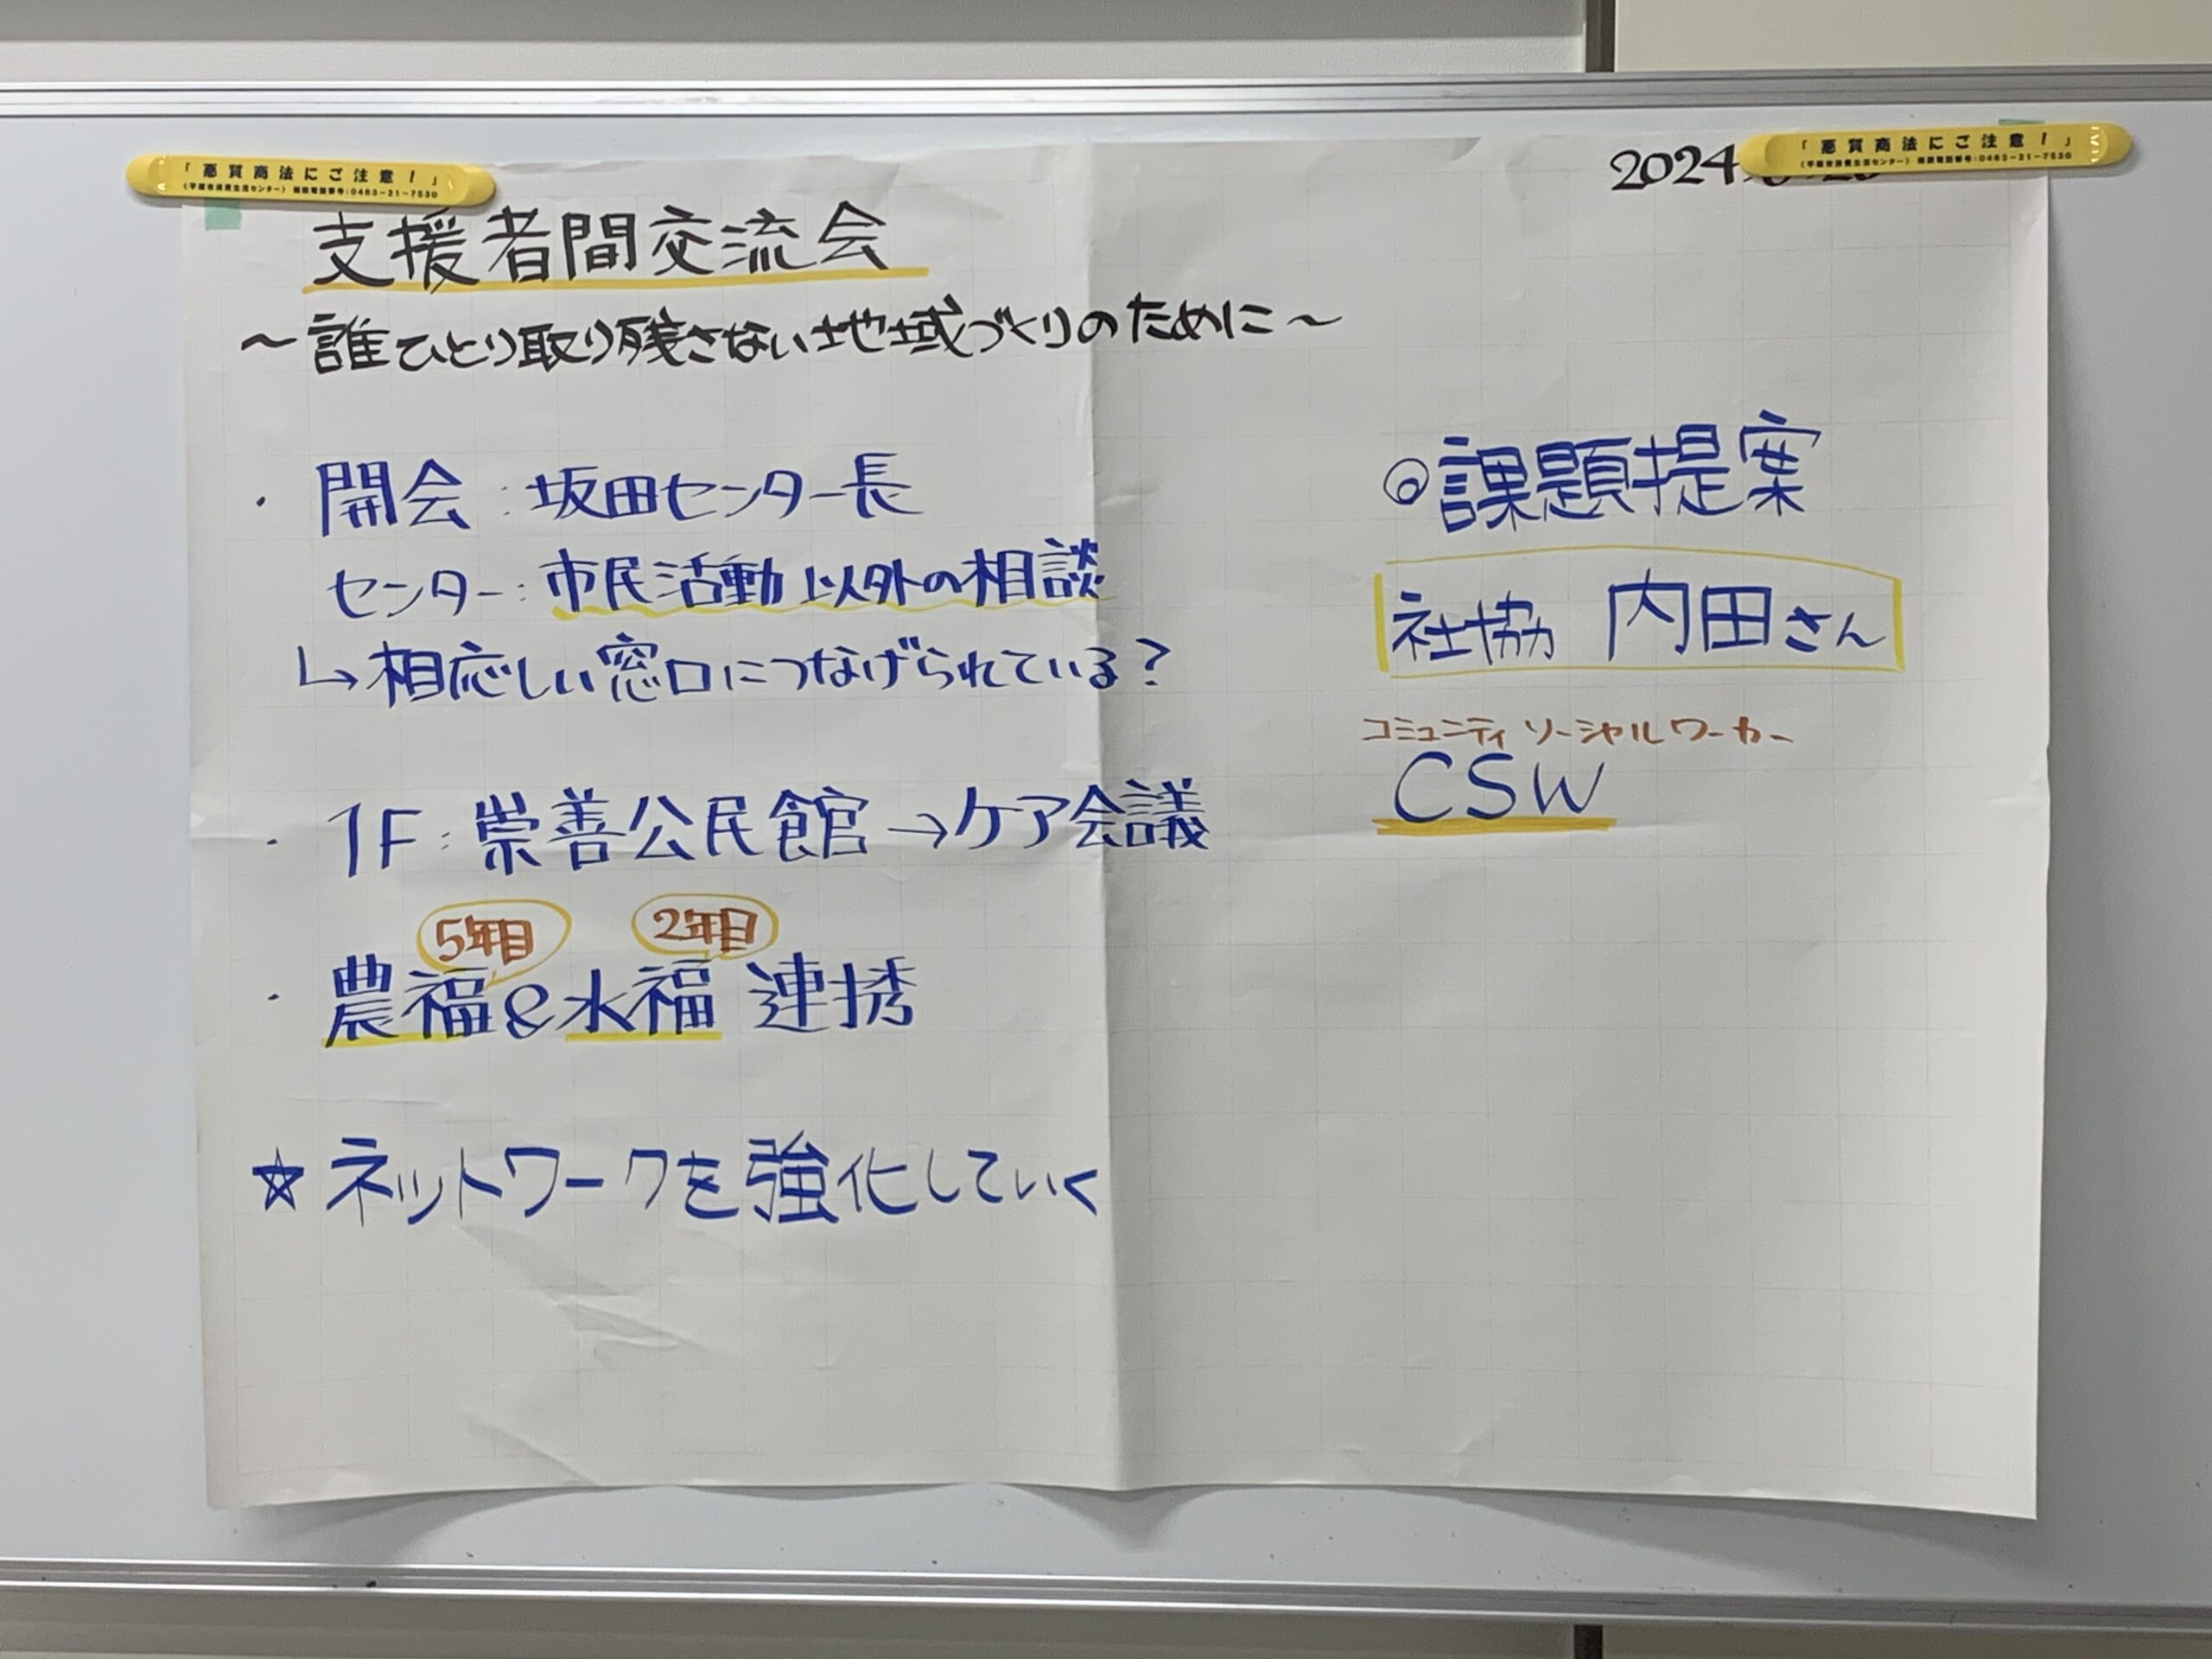 「悪質商法にご注意！」
（平塚市消費生活センター） 相談電話番号：0463-21-7530
「悪質商法にご注意！」
（平塚市消費生活センター） 相談電話番号：0463-21-7530
2024
支援者間交流会
〜誰ひとり取り残さない地域づくりのために〜
・開会：坂田センター長
センター：市民活動以外の相談
↳相応しい窓口につなげられている？
・1F：崇善公民館→ケア会議
5年目 2年目
・農福&水福 連携
☆ネットワークを強化していく
◎課題提案
社協 内田さん
コミュニティソーシャルワーカー
CSW